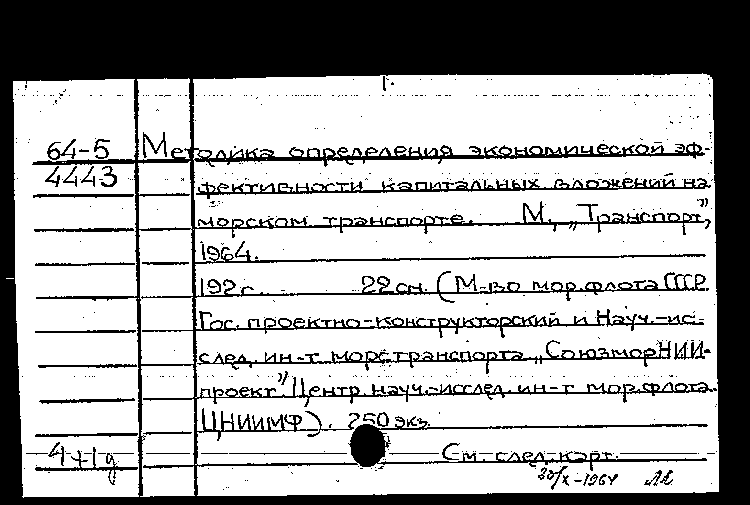 1.
64-5 Методика определения экономической эф-
4443 фективности капитальных вложений на
морском транспорте. М., „Транспорт”,
1964.
192 с. 22 см. (М-во мор. флота СССР.
Гос. проектно-конструкторский и науч.-ис-
след. ин-т морс. транспорта „СоюзморНИИ-
проект” Центр. науч.-исслед. ин-т мор. флота.
ЦНИИМФ). 250 экз.
4+1д См. след. карт.
X-1964